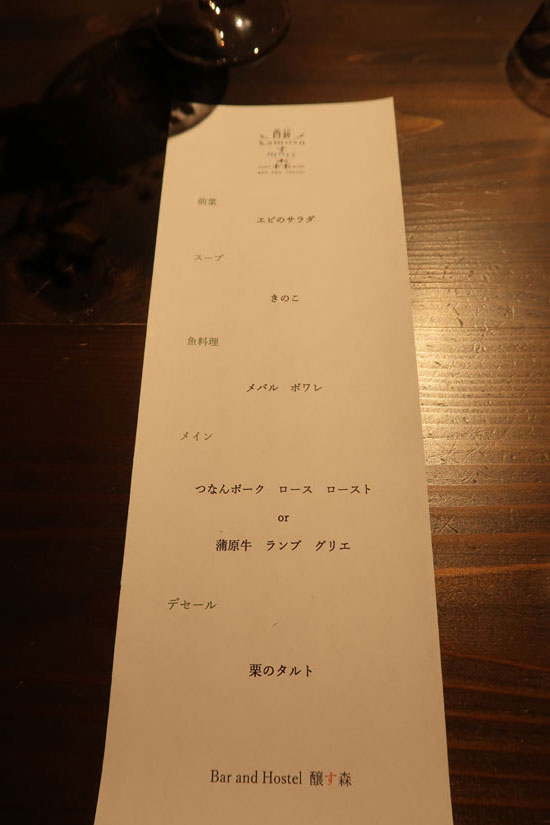 醸
kamosu
す
mori
森
BAR AND HOSTEL
前菜
エビのサラダ
スープ
きのこ
魚料理
メバル ポワレ
メイン
つなんポーク ロース ロースト
or
蒲原牛 ランプ グリエ
デセール
栗のタルト
Bar and Hostel 醸す森